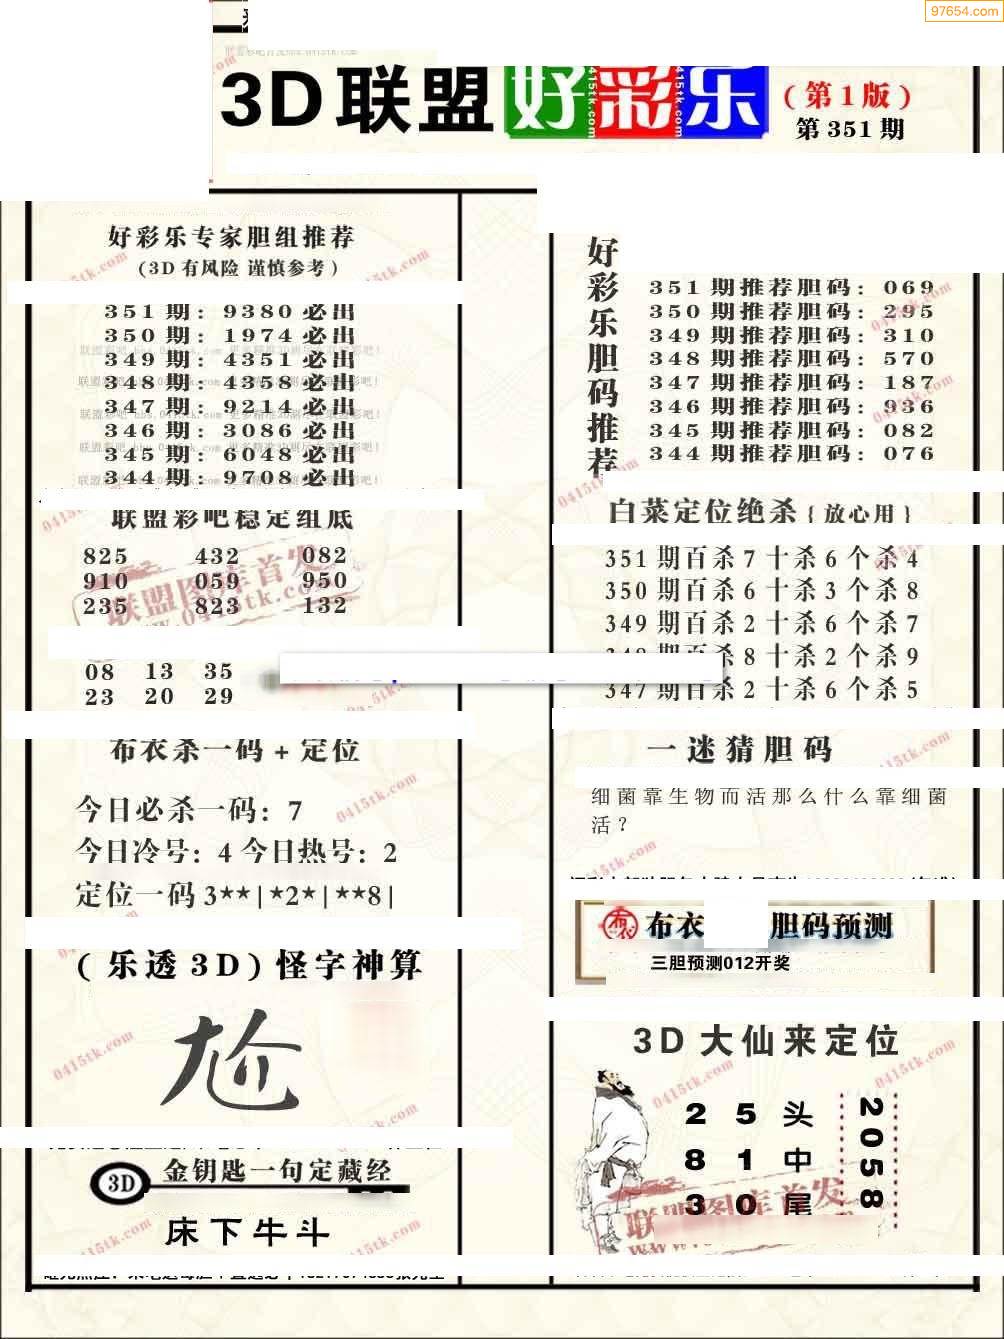 97654.com
3D联盟好彩乐
(第1版)
第351期
好彩乐专家胆组推荐
(3D有风险 谨慎参考)
351期: 9380必出
350期: 1974必出
349期: 4351必出
348期: 4358必出
347期: 9214必出
346期: 3086必出
345期: 6048必出
344期: 9708必出
联盟彩吧稳定组底
825 432 082
910 059 950
235 823 132
08 13 35
23 20 29
布衣杀一码+定位
今日必杀一码: 7
今日冷号: 4 今日热号: 2
定位一码 3**|*2*|**8|
(乐透3D)怪字神算
尬
3D 金钥匙一句定藏经
床下牛斗
好彩乐胆码推荐
351期推荐胆码: 069
350期推荐胆码: 295
349期推荐胆码: 310
348期推荐胆码: 570
347期推荐胆码: 187
346期推荐胆码: 936
345期推荐胆码: 082
344期推荐胆码: 076
白菜定位绝杀{放心用}
351期百杀7十杀6个杀4
350期百杀6十杀3个杀8
349期百杀2十杀6个杀7
348期百杀8十杀2个杀9
347期百杀2十杀6个杀5
一迷猜胆码
细菌靠生物而活那么什么靠细菌
活?
布衣 布衣 胆码预测
三胆预测012开奖
3D大仙来定位
2 5 头
8 1 中
3 0 尾
2058
联盟图库首发
0415tk.com